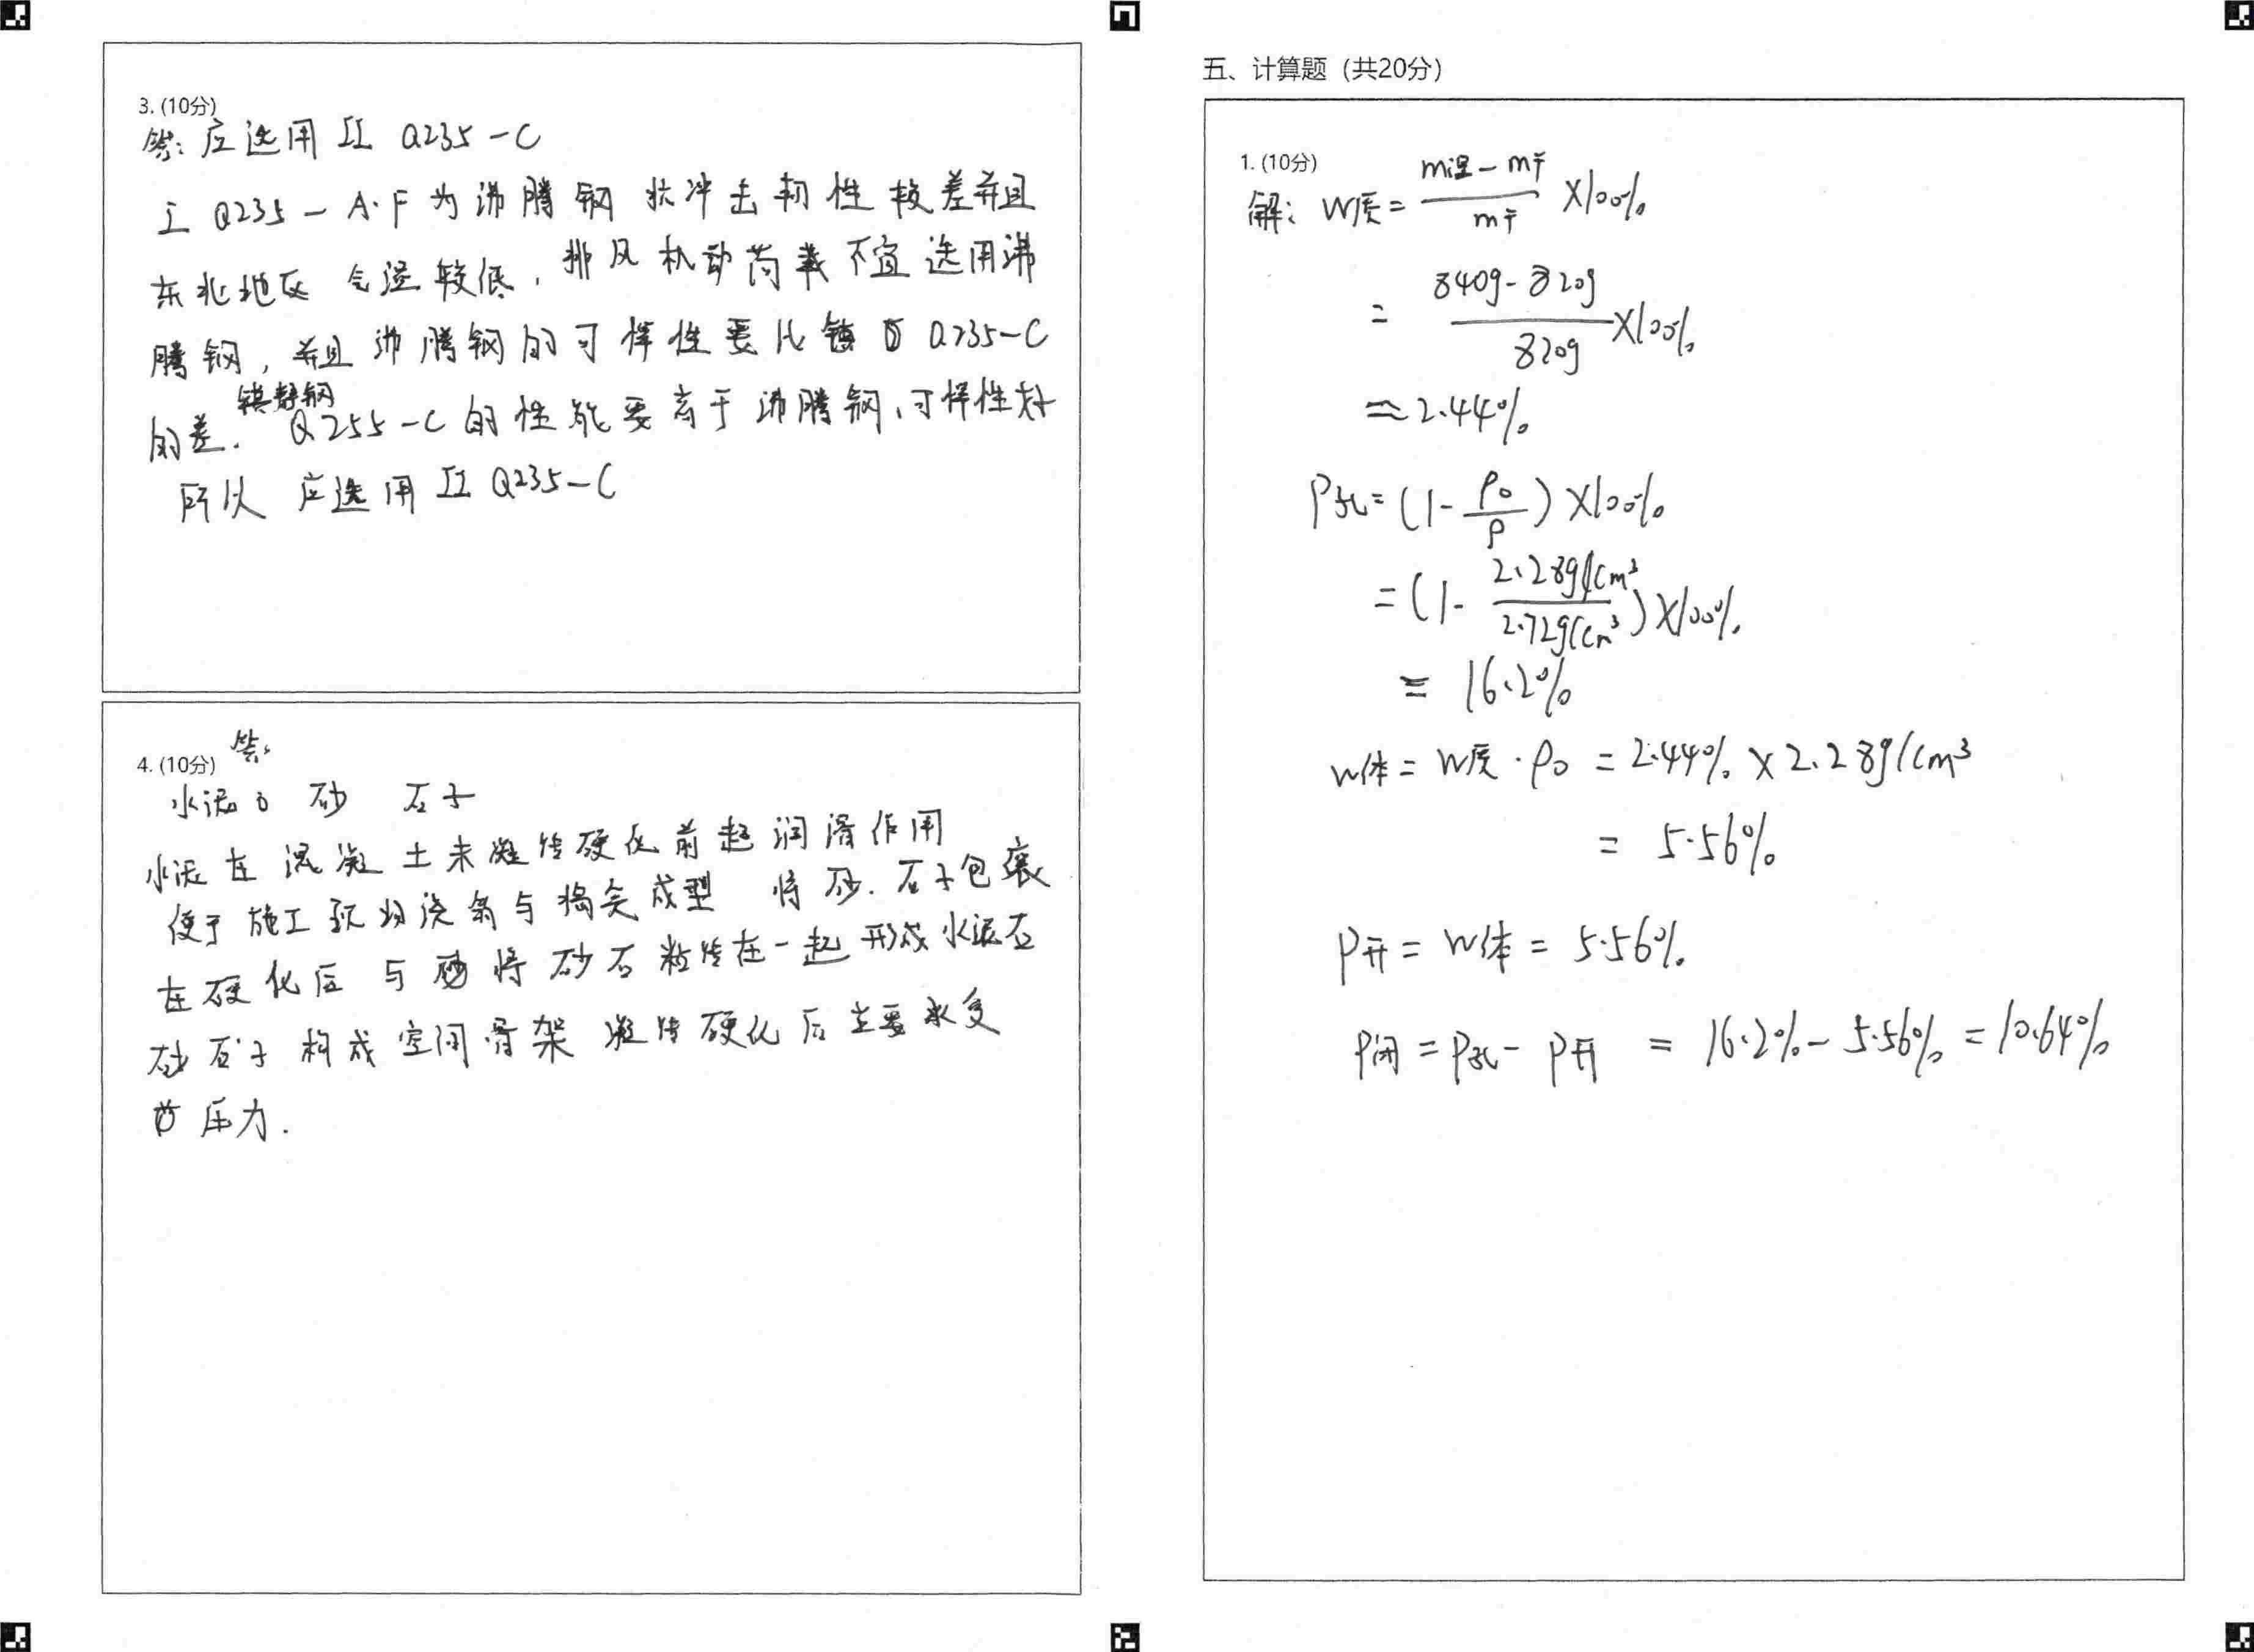 3. (10分)
答：应选用 II Q235-C
I Q235-A·F为沸腾钢 抗冲击韧性较差并且
东北地区 气温较低，排风机动荷载不宜选用沸
腾钢，并且沸腾钢的可焊性要比 Q235-C
的差. 镇静钢
Q255-C的性能要高于沸腾钢，可焊性好
所以 应选用 II Q235-C
4. (10分) 答:
水泥 砂 石子
水泥在混凝土未凝结硬化前起润滑作用
便于施工 浇筑与捣实成型 将砂.石子包裹
在硬化后 与 将砂石粘结在一起形成水泥石
砂石子构成空间骨架 凝结硬化后主要承受
压力.
五、计算题（共20分）
1. (10分)
解：W质= (m湿-m干)/m干 ×100%
= (840g-820g)/820g ×100%
≈2.44%
P孔=(1-ρ0/ρ)×100%
=(1-2.28g/cm³/2.72g/cm³)×100%
= 16.2%
W体=W质·ρ0=2.44%×2.28g/cm³
= 5.56%
P开=W体=5.56%
P闭=P孔-P开 = 16.2%-5.56%=10.64%